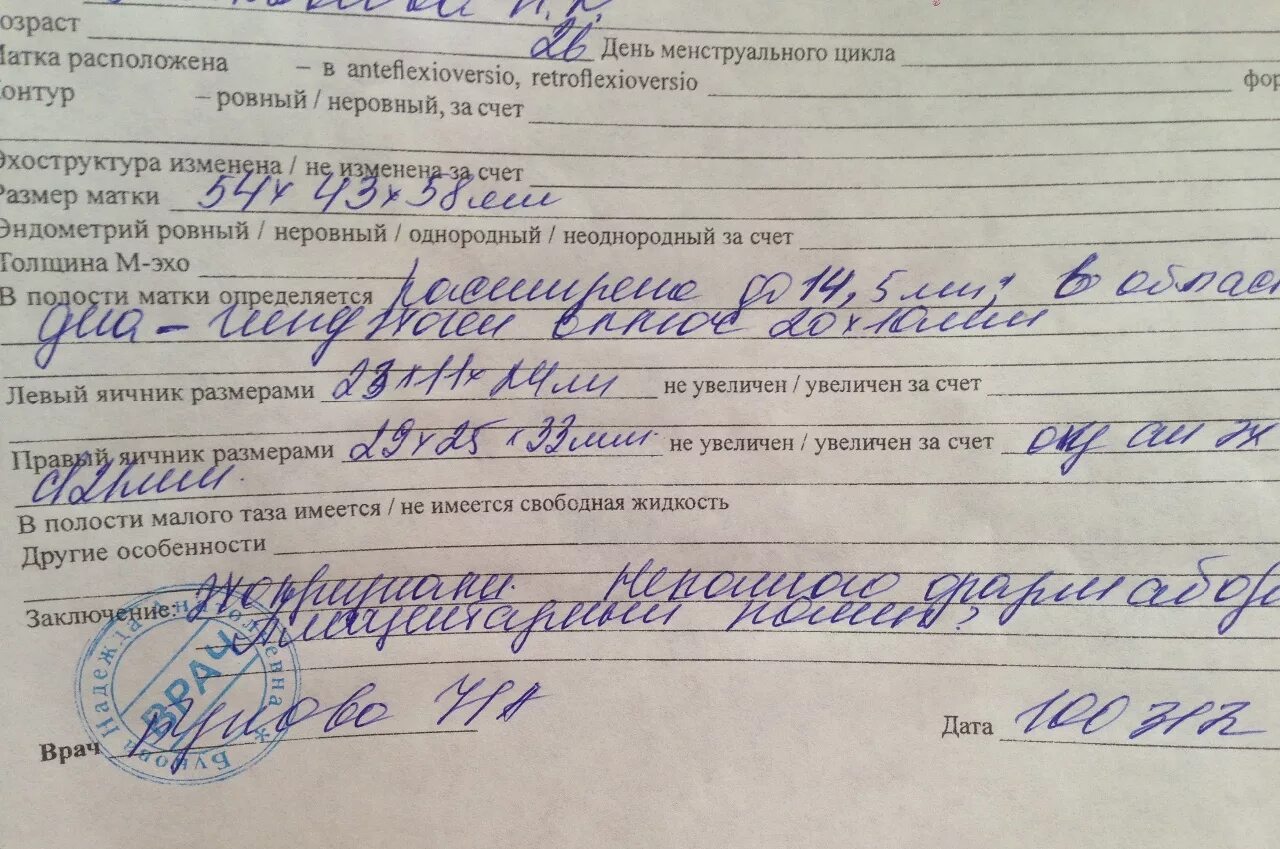 озраст 26 День менструального цикла
Матка расположена – в anteflexioversio, retroflexioversio фор
онтур – ровный / неровный, за счет
Эхоструктура изменена / не изменена за счет
Размер матки 54х 43х58мм
Эндометрий ровный / неровный / однородный / неоднородный за счет
Толщина М-эхо
В полости матки определяется расширена до 14,5мм; в облас
дна – 20х10мм
Левый яичник размерами 23х11х14мм не увеличен / увеличен за счет
Правый яичник размерами 29х25х33мм. не увеличен / увеличен за счет
d21мм.
В полости малого таза имеется / не имеется свободная жидкость
Другие особенности
Заключение: Эхопризнаки Неполного
Плацентарный полип?
ВРАЧ
Букова Надежда
Врач
Дата